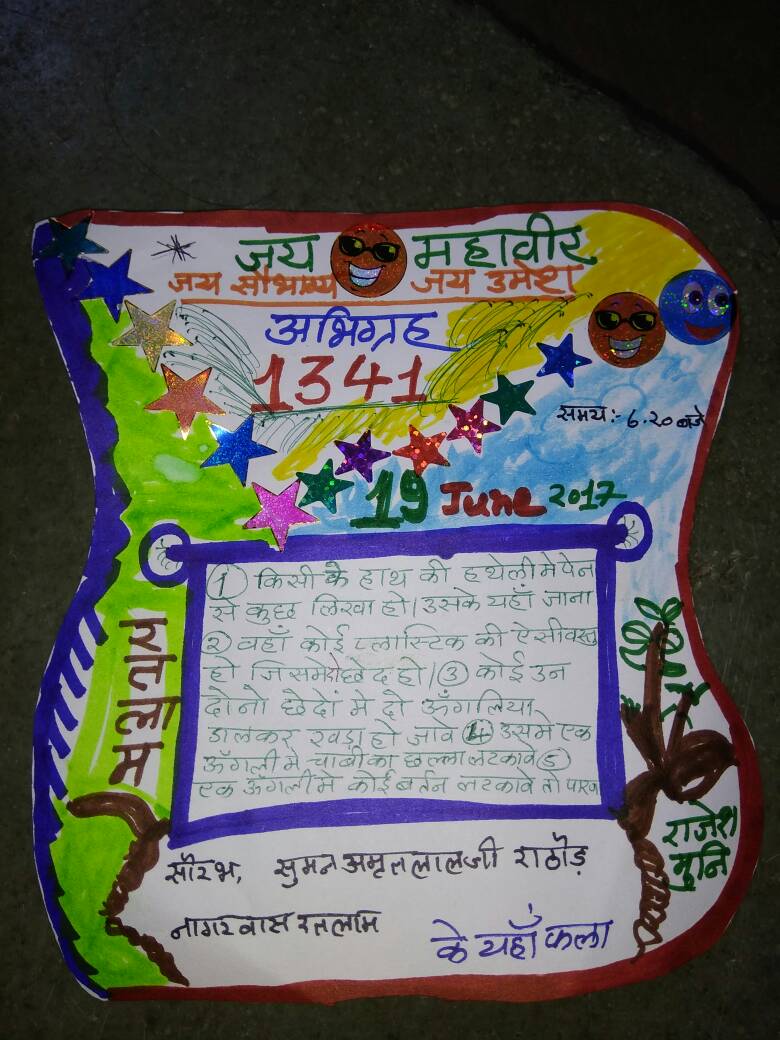 जय महावीर
जय सौभाग्य जय उमेश
अभिग्रह
1341
समय:- 6.20 बजे
19 June 2017
① किसी के हाथ की हथेली मे पेन
से कुछ लिखा हो। उसके यहाँ जाना
② वहाँ कोई प्लास्टिक की ऐसी वस्तु
हो जिसमे दो छेद हो। ③ कोई उन
दोनो छेदों मे दो ऊँगलिया
डालकर खड़ा हो जावे ④ उसमे एक
ऊँगली मे चाबी का छल्ला लटकावे ⑤
एक ऊँगली मे कोई बर्तन लटकावे तो पारणा
रतलाम
राजेश
मुनि
सौरभ, सुमन अमृतलालजी राठौड़
नागरवास रतलाम
के यहाँ फला